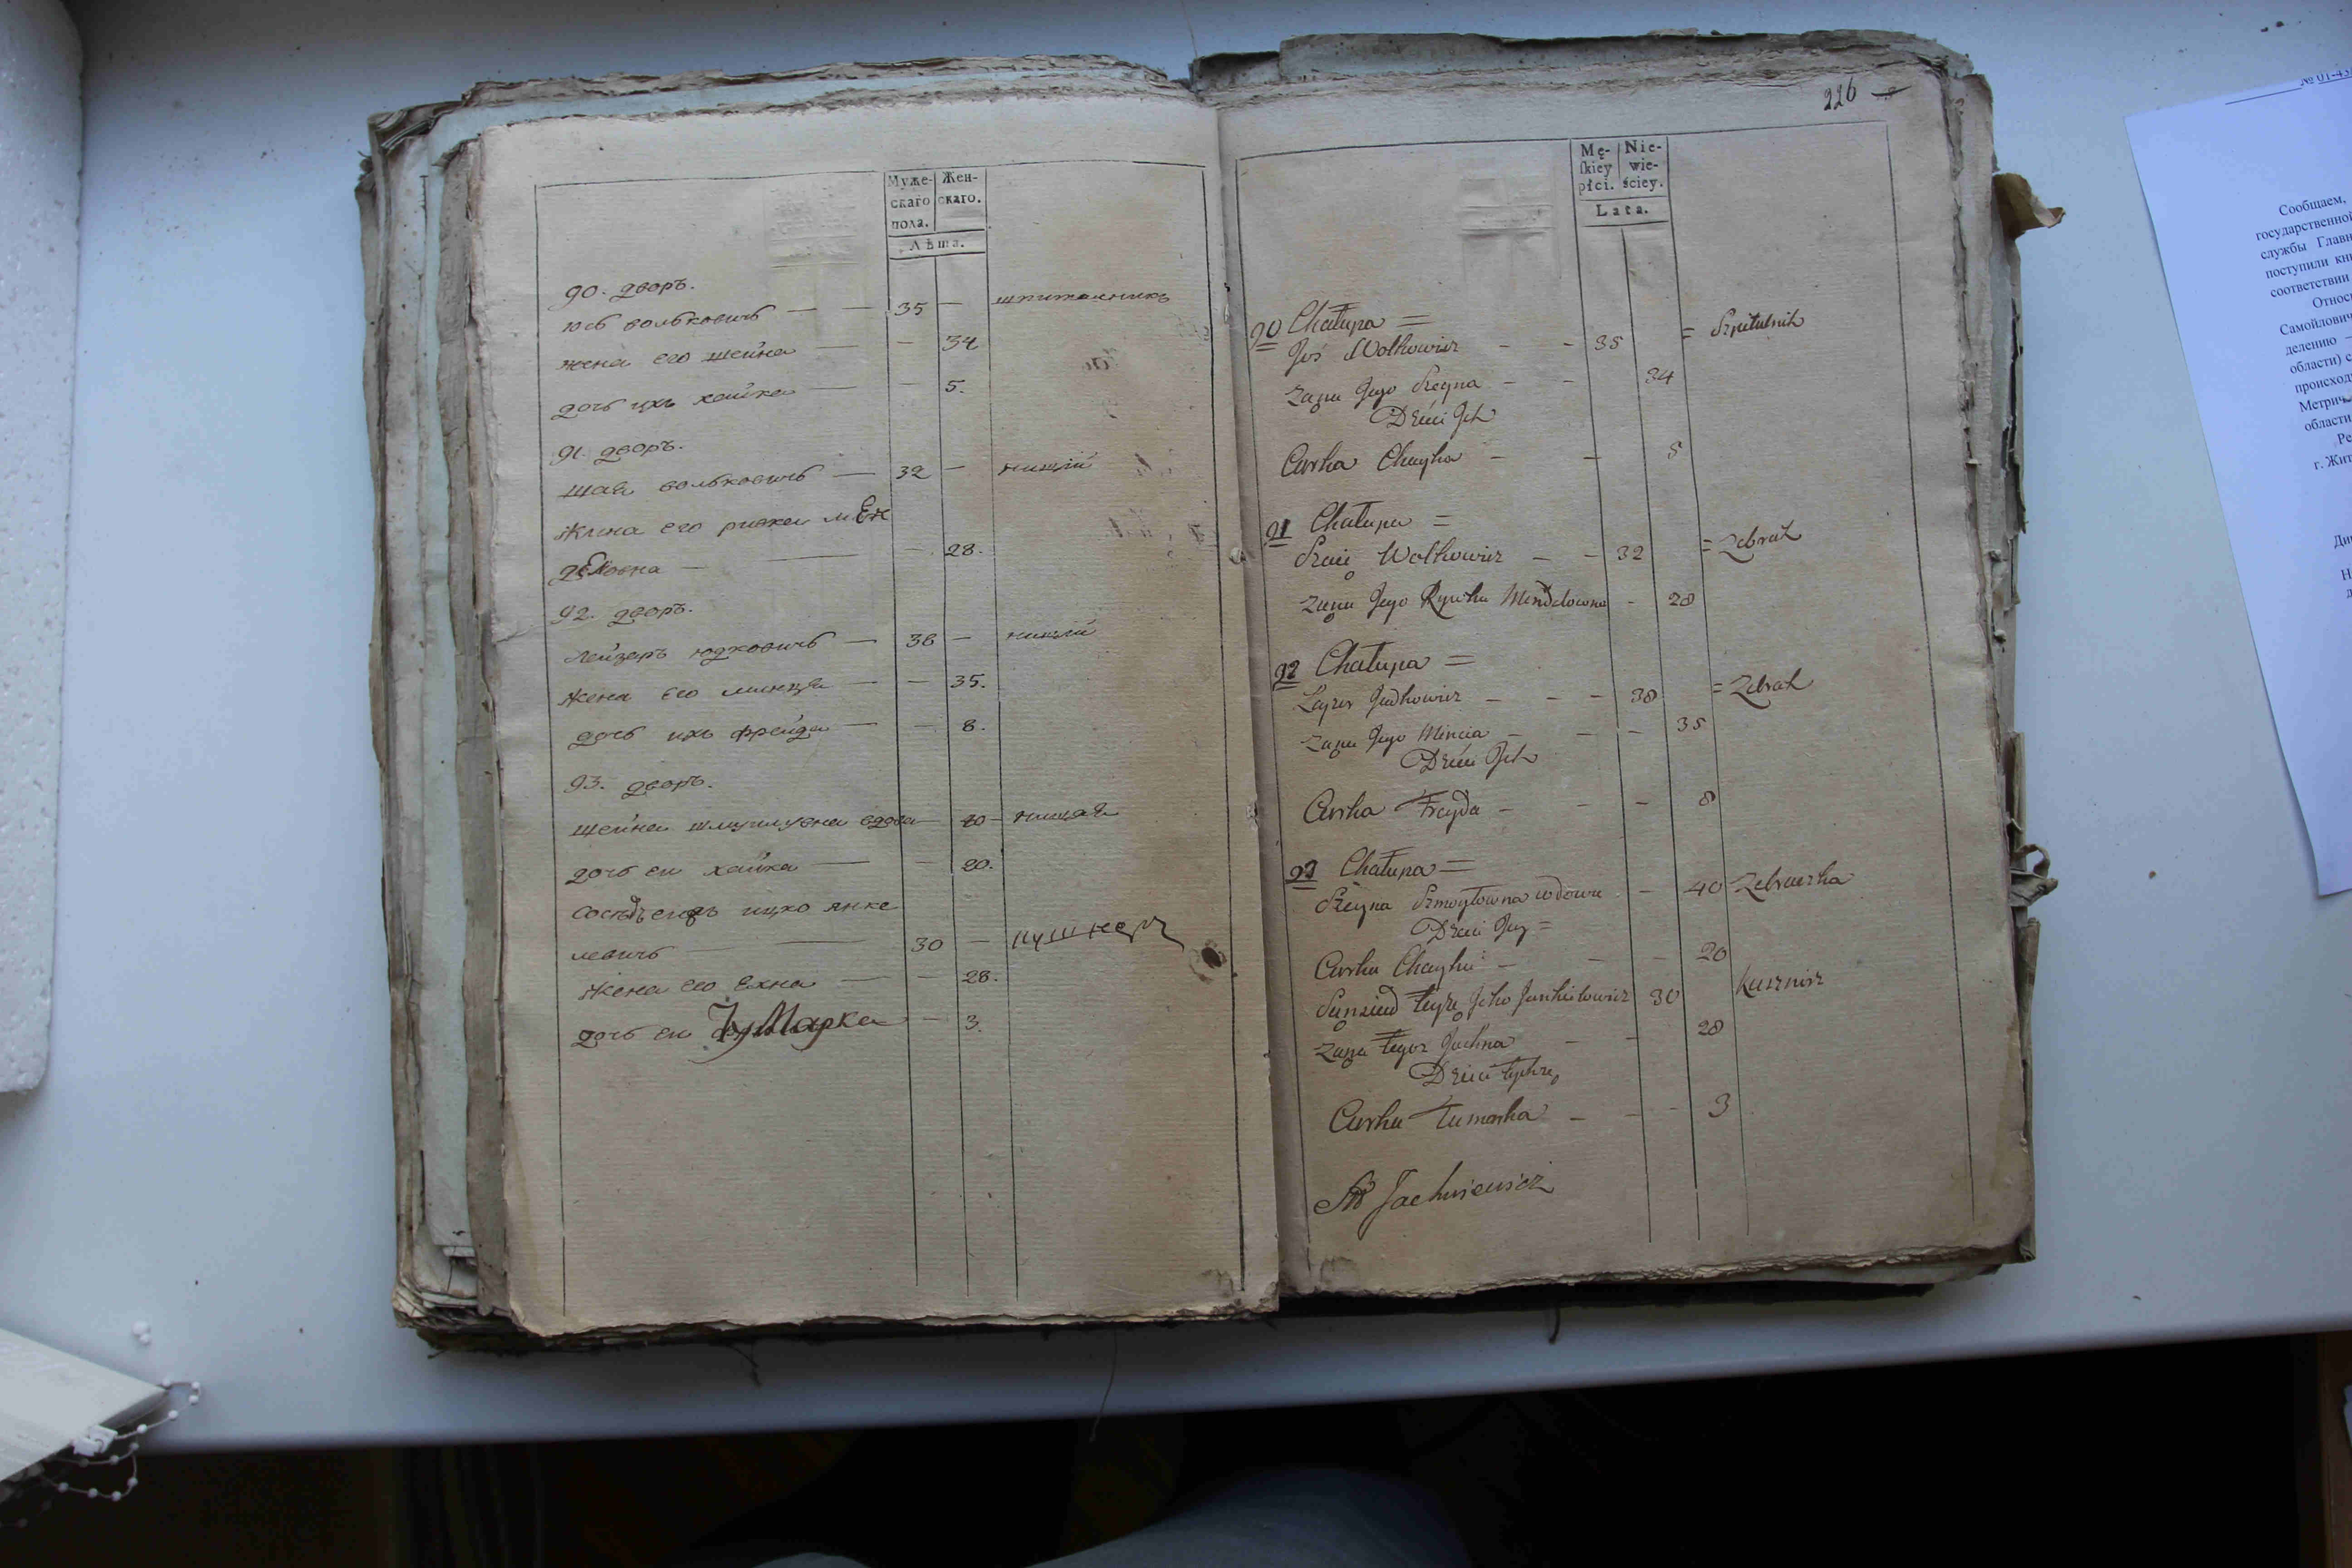 Муже-
скаго
пола.
Жен-
скаго.
Лѣта.
90. дворъ.
юсь вольковичь — — 35 — шпитальникъ
жена его шейна — — 34
дочь ихъ хайка — — 5.
91. дворъ.
шая вольковичь — 32 — нищій
жина его ривка мен
делювна — — — 28.
92. дворъ.
лейзеръ юдковичь — 38 — нищій
жена его минця — — 35.
дочь ихъ фрейда — — 8.
93. дворъ.
шейна шмуйлувна вдова — 40 — нищая
дочь еи хайка — — 20.
ицко янке
левичь — — 30 — кушнеръ
жена его Ехна — — 28.
дочь еи Тумарка — 3.
226
Mę-
skiey
płci.
Nie-
wie-
ściey.
Lata.
90 Chałupa =
Joś Wolkowicz - - 35 = Szpitalnik
Żona Jego Szeyna - - 34
Dzieci Ich
Curka Chayka - - 5
91 Chałupa =
Szaię Wolkowicz - - 32 = Żebrak
Żona Jego Rywka Mendelowna - 28
92 Chałupa =
Layzer Judkowicz - - - 38 = Żebrak
Żona Jego Mincia - - - 35
Dzieci Ich
Curka Frayda - - - 8
93 Chałupa =
Szeyna Szmoyłowna wdowa - - 40 Żebraczka
Dzieci Jey =
Curka Chayka - - - 20
Sąnsiad teyże Icko Jankielowicz 30 Kusznirz
Żona tegoż Jachna - - 28
Dzieci tychże
Curka Tumarka - - - 3
Jachniewicz
№ 01-43
Сообщаем,
государственной
службы Главн
поступили кни
соответствии
Относ
Самойлович
делению –
области) с
происход
Метрич
области
Ре
г. Жит
Ди
Н